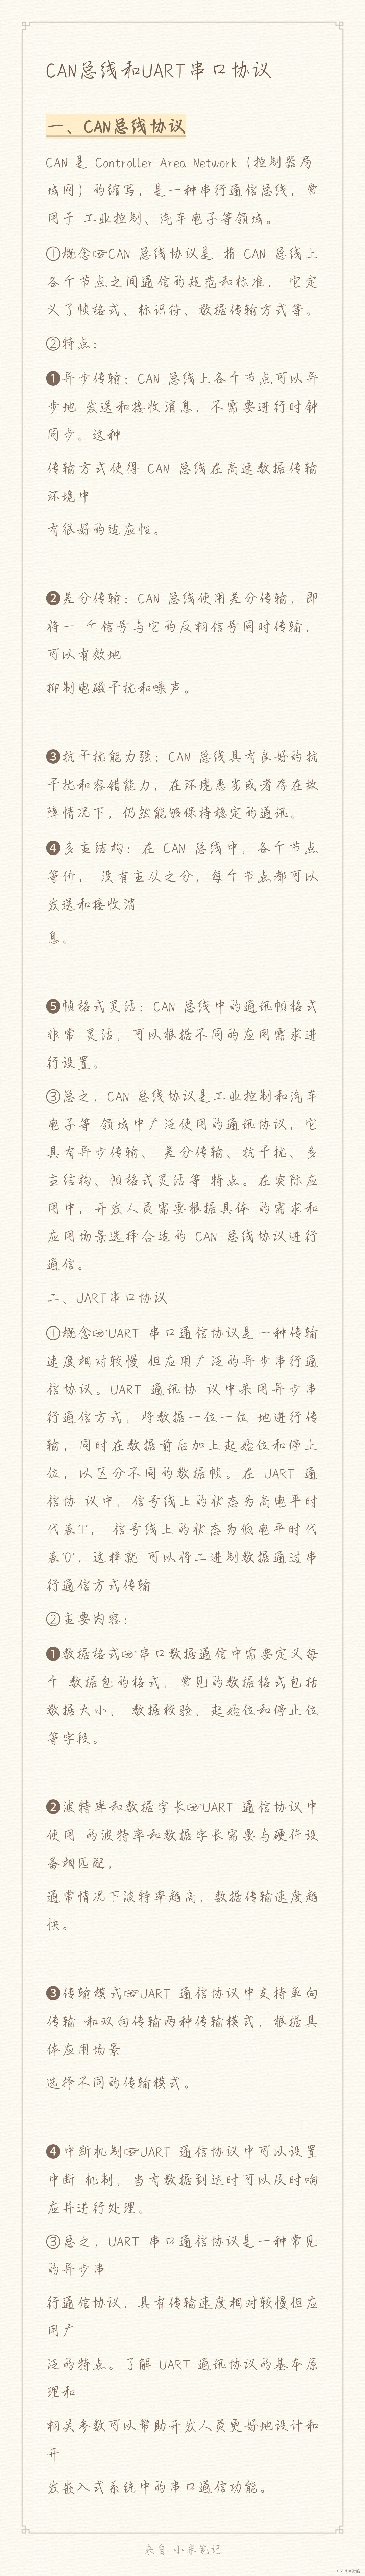 CAN总线和UART串口协议
一、CAN总线协议
CAN 是 Controller Area Network（控制器局
域网）的缩写，是一种串行通信总线，常
用于 工业控制、汽车电子等领域。
①概念☞CAN 总线协议是 指 CAN 总线上
各个节点之间通信的规范和标准， 它定
义了帧格式、标识符、数据传输方式等。
②特点：
❶异步传输：CAN 总线上各个节点可以异
步地 发送和接收消息，不需要进行时钟
同步。这种
传输方式使得 CAN 总线在高速数据传输
环境中
有很好的适应性。
❷差分传输：CAN 总线使用差分传输，即
将一 个信号与它的反相信号同时传输，
可以有效地
抑制电磁干扰和噪声。
❸抗干扰能力强：CAN 总线具有良好的抗
干扰和容错能力，在环境恶劣或者存在故
障情况下，仍然能够保持稳定的通讯。
❹多主结构：在 CAN 总线中，各个节点
等价， 没有主从之分，每个节点都可以
发送和接收消
息。
❺帧格式灵活：CAN 总线中的通讯帧格式
非常 灵活，可以根据不同的应用需求进
行设置。
③总之，CAN 总线协议是工业控制和汽车
电子等 领域中广泛使用的通讯协议，它
具有异步传输、 差分传输、抗干扰、多
主结构、帧格式灵活等 特点。在实际应
用中，开发人员需要根据具体 的需求和
应用场景选择合适的 CAN 总线协议进行
通信。
二、UART串口协议
①概念☞UART 串口通信协议是一种传输
速度相对较慢 但应用广泛的异步串行通
信协议。UART 通讯协 议中采用异步串
行通信方式，将数据一位一位 地进行传
输，同时在数据前后加上起始位和停止
位，以区分不同的数据帧。在 UART 通
信协 议中，信号线上的状态为高电平时
代表'1'， 信号线上的状态为低电平时代
表'0'，这样就 可以将二进制数据通过串
行通信方式传输
②主要内容：
❶数据格式☞串口数据通信中需要定义每
个 数据包的格式，常见的数据格式包括
数据大小、 数据校验、起始位和停止位
等字段。
❷波特率和数据字长☞UART 通信协议中
使用 的波特率和数据字长需要与硬件设
备相匹配，
通常情况下波特率越高，数据传输速度越
快。
❸传输模式☞UART 通信协议中支持单向
传输 和双向传输两种传输模式，根据具
体应用场景
选择不同的传输模式。
❹中断机制☞UART 通信协议中可以设置
中断 机制，当有数据到达时可以及时响
应并进行处理。
③总之，UART 串口通信协议是一种常见
的异步串
行通信协议，具有传输速度相对较慢但应
用广
泛的特点。了解 UART 通讯协议的基本原
理和
相关参数可以帮助开发人员更好地设计和
开
发嵌入式系统中的串口通信功能。
来自 小米笔记